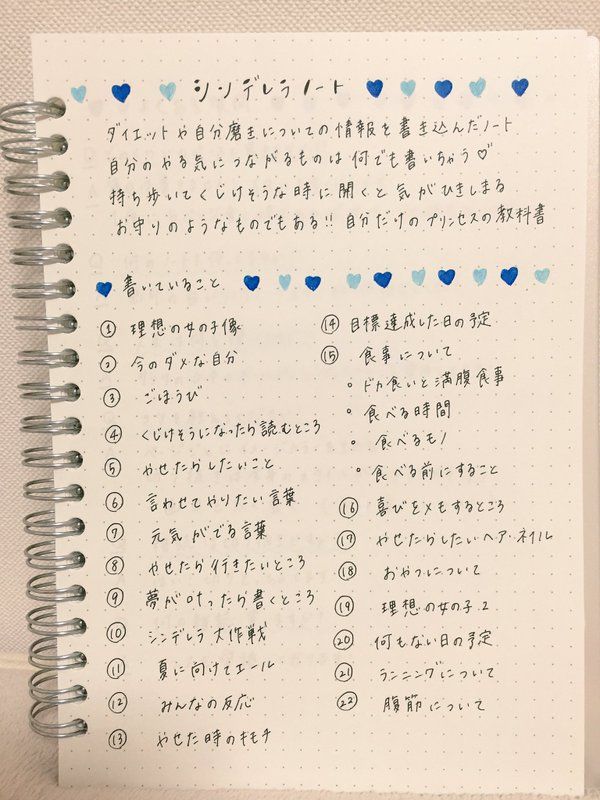 シンデレラノート
ダイエットや自分磨きについての情報を書き込んだノート
自分のやる気につながるものは何でも書いちゃう♡
持ち歩いてくじけそうな時に開くと気がひきしまる
お守りのようなものでもある!! 自分だけのプリンセスの教科書
書いていること
① 理想の女の子像
② 今のダメな自分
③ ごほうび
④ くじけそうになったら読むところ
⑤ やせたらしたいこと
⑥ 言わせてやりたい言葉
⑦ 元気がでる言葉
⑧ やせたら行きたいところ
⑨ 夢が叶ったら書くところ
⑩ シンデレラ大作戦
⑪ 夏に向けてエール
⑫ みんなの反応
⑬ やせた時のキモチ
⑭ 目標達成した日の予定
⑮ 食事について
◦ ドカ食いと満腹食事
◦ 食べる時間
◦ 食べるモノ
◦ 食べる前にすること
⑯ 喜びをメモするところ
⑰ やせたらしたいヘア・ネイル
⑱ おやつについて
⑲ 理想の女の子.2
⑳ 何もない日の予定
㉑ ランニングについて
㉒ 腹筋について